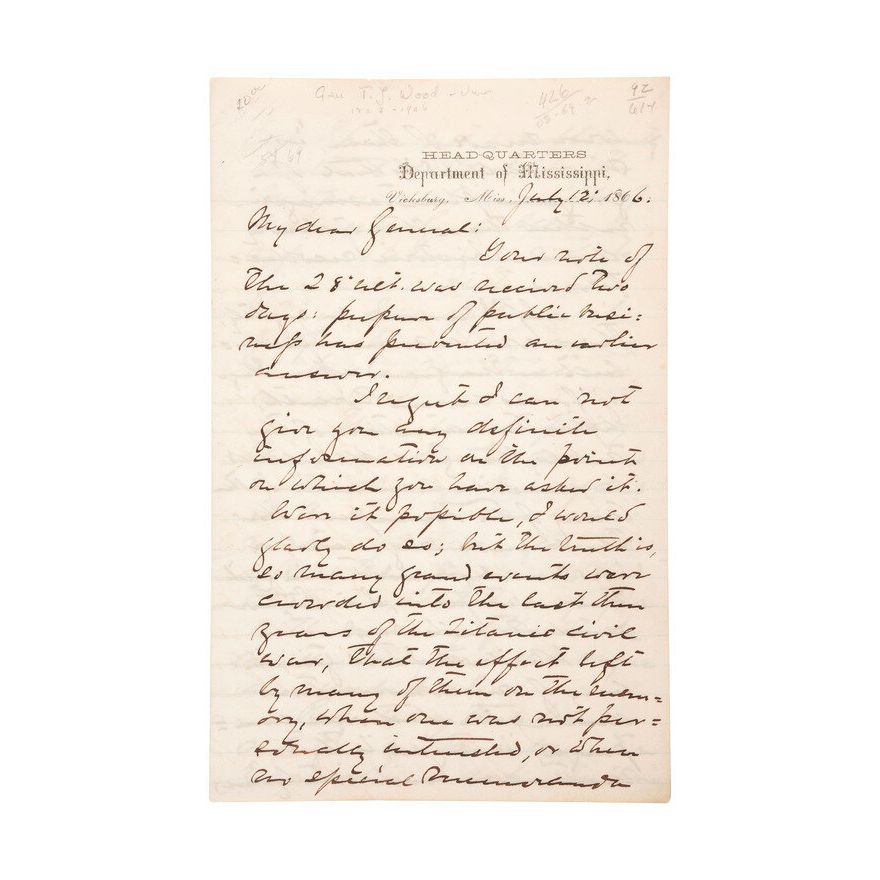 Gen T. J. Wood
92
614
HEAD-QUARTERS
Department of Mississippi,
Vicksburg, Miss. July 12, 1866.
My dear General:
Your note of
the 28" ult. was received two
days: pressure of public busi=
ness has prevented an earlier
answer.
I regret I can not
give you any definite
information on the point
on which you have asked it.
Were it possible, I would
gladly do so; but the truth is,
so many grand events were
crowded into the last three
years of the titanic civil
war, that the effect left
by many of them on the mem=
ory, when one was not per=
sonally interested, or when
no special memoranda